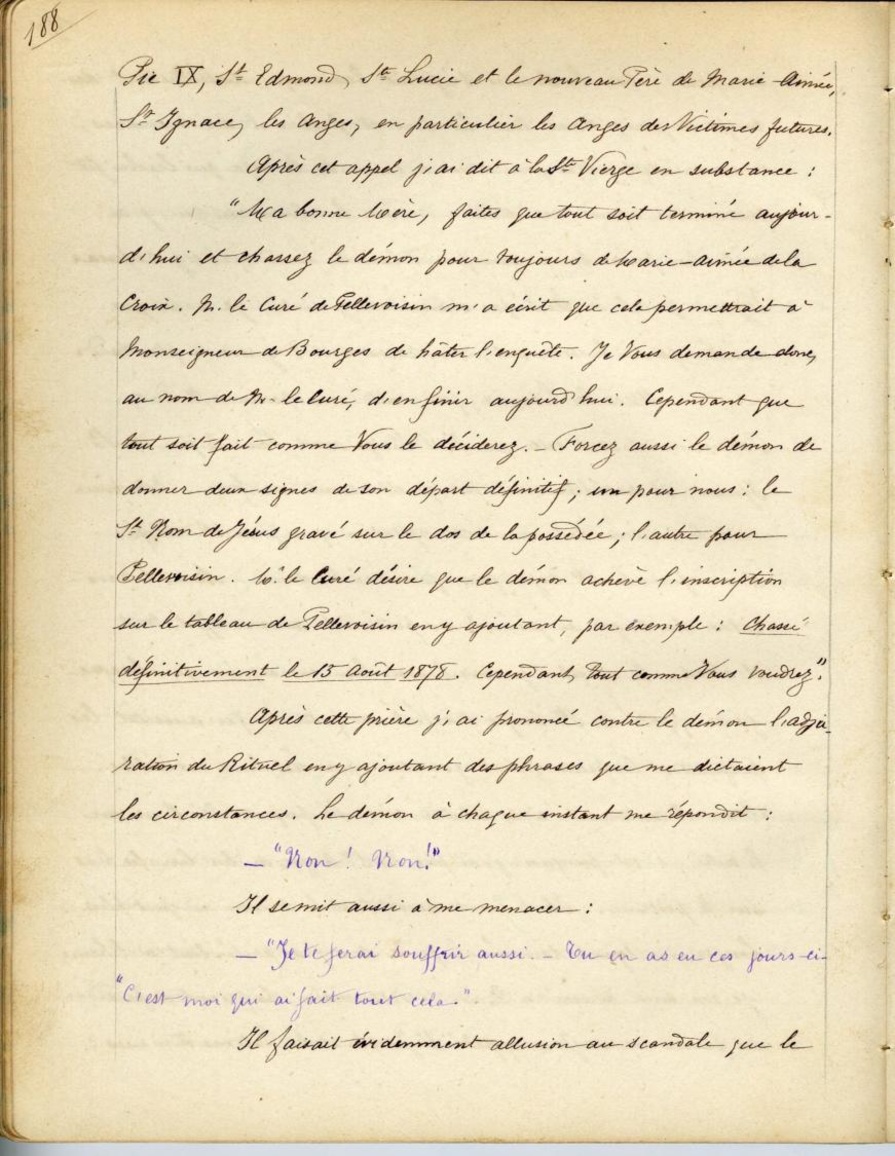 188
Pie IX, St Edmond, Ste Lucie et le nouveau Père de Marie-Aimée,
St Ignace, les Anges, en particulier les Anges des Victimes futures.
Après cet appel j'ai dit à la Ste Vierge en substance :
"Ma bonne Mère, faites que tout soit terminé aujour-
d'hui et chassez le démon pour toujours de Marie-Aimée de la
Croix. M. le Curé de Pellevoisin m'a écrit que cela permettrait à
Monseigneur de Bourges de hâter l'enquête. Je Vous demande donc,
au nom de M. le Curé, d'en finir aujourd'hui. Cependant que
tout soit fait comme Vous le déciderez. - Forcez aussi le démon de
donner deux signes de son départ définitif ; un pour nous : le
St Nom de Jésus gravé sur le dos de la possédée ; l'autre pour
Pellevoisin. M. le Curé désire que le démon achève l'inscription
sur le tableau de Pellevoisin en y ajoutant, par exemple : chassé
définitivement le 15 Août 1878. Cependant, tout comme Vous voudrez".
Après cette prière j'ai prononcé contre le démon l'adju-
ration du Rituel en y ajoutant des phrases que me dictaient
les circonstances. Le démon à chaque instant me répondit :
— "Non ! Non !"
Il se mit aussi à me menacer :
— "Je te ferai souffrir aussi. - Tu en as eu ces jours-ci-
"C'est moi qui ai fait tout cela."
Il faisait évidemment allusion au scandale que le